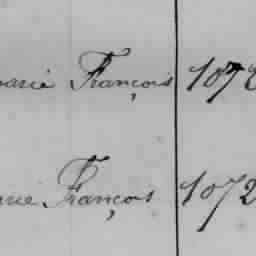 marie François 107
rie François 1072